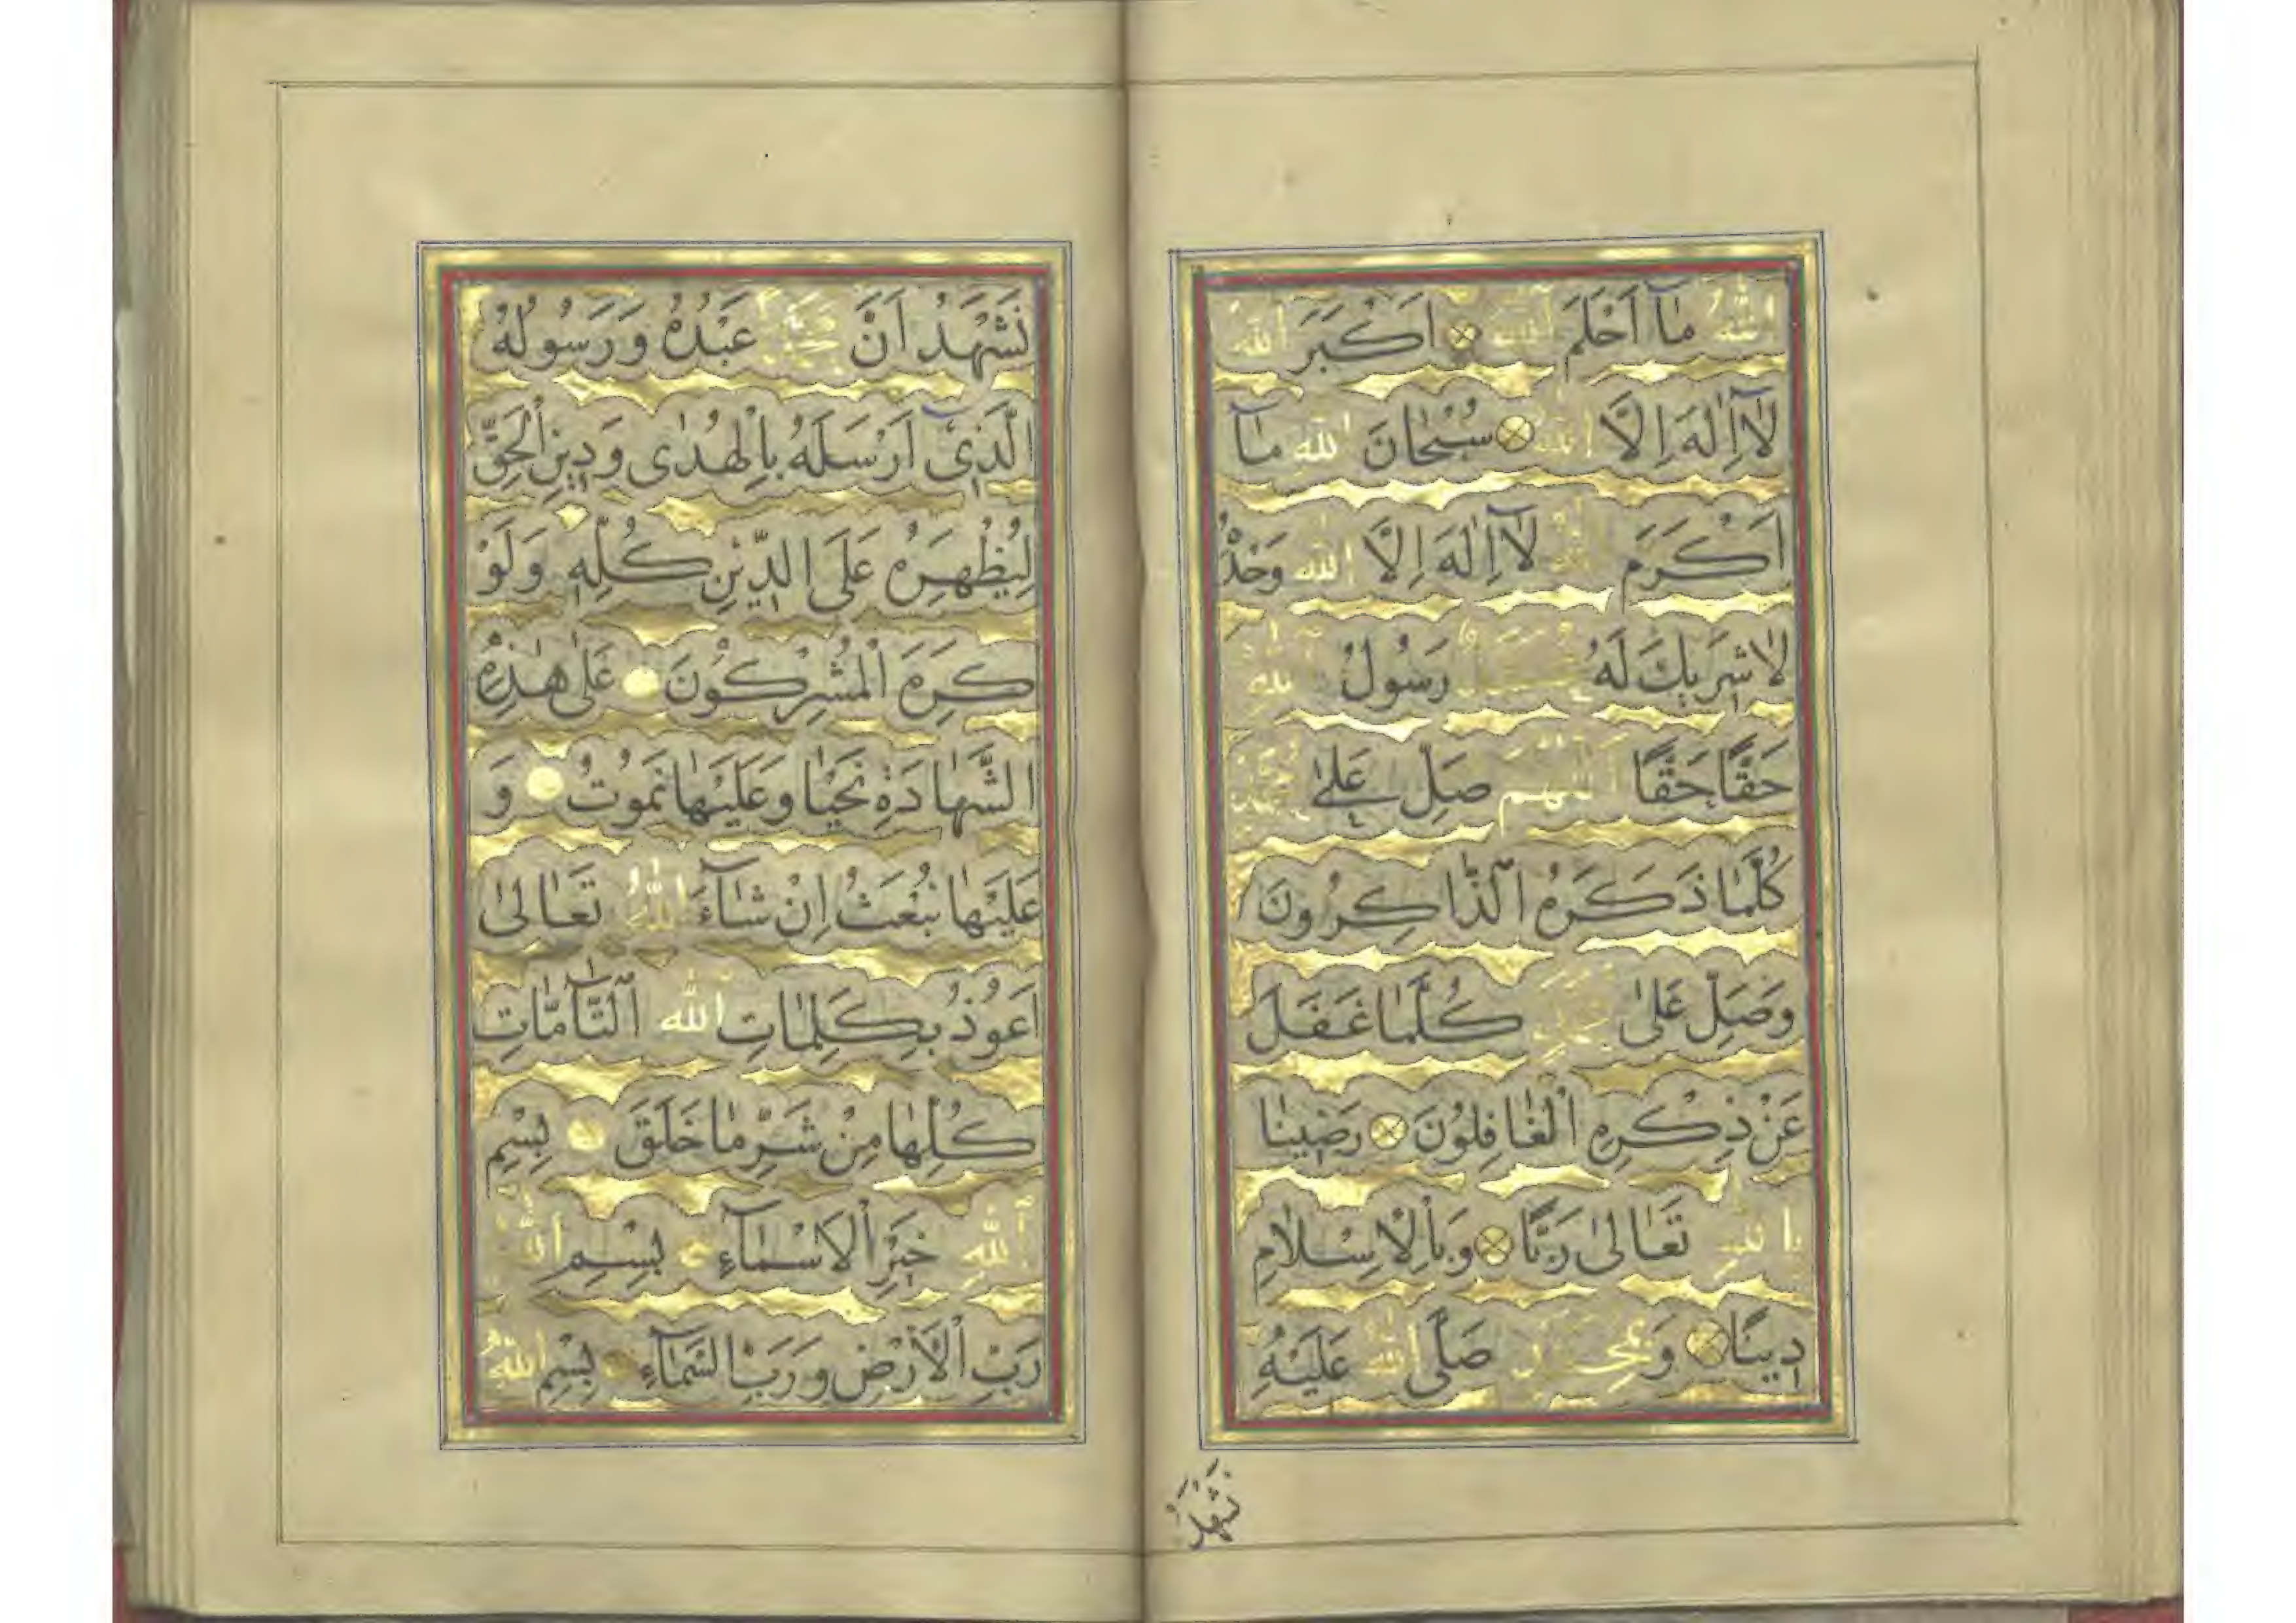 اللّٰهُ مٰا اَحْلَمَ اللّٰهَ اَكْبَرَ اللّٰهَ
لٰا اِلٰهَ اِلَّا اللّٰهُ سُبْحٰانَ اللّٰهِ مٰا
اَكْرَمَ اللّٰهَ لٰا اِلٰهَ اِلَّا اللّٰهُ وَحْدَهُ
لٰا شَرِيكَ لَهُ رَسُولُ اللّٰهِ
حَقًّا حَقًّا اَللّٰهُمَّ صَلِّ عَلىٰ مُحَمَّدٍ
كُلَّمٰا ذَكَرَهُ الذّٰاكِرُونَ
وَصَلِّ عَلىٰ مُحَمَّدٍ كُلَّمٰا غَفَلَ
عَنْ ذِكْرِهِ الْغٰافِلُونَ رَضِينٰا
بِاللّٰهِ تَعٰالىٰ رَبًّا وَبِالْاِسْلٰامِ
دِينًا وَبِمُحَمَّدٍ صَلَّى اللّٰهُ عَلَيْهِ
نَشْهَدُ
نَشْهَدُ اَنَّ مُحَمَّدًا عَبْدُهُ وَرَسُولُهُ
الَّذِي اَرْسَلَهُ بِالْهُدٰى وَدِينِ الْحَقِّ
لِيُظْهِرَهُ عَلَى الدِّينِ كُلِّهِ وَلَوْ
كَرِهَ الْمُشْرِكُونَ عَلىٰ هٰذِهِ
الشَّهٰادَةِ نَحْيٰا وَعَلَيْهٰا نَمُوتُ وَ
عَلَيْهٰا نُبْعَثُ اِنْ شٰاءَ اللّٰهُ تَعٰالىٰ
اَعُوذُ بِكَلِمٰاتِ اللّٰهِ التّٰامّٰاتِ
كُلِّهٰا مِنْ شَرِّ مٰا خَلَقَ بِسْمِ
اللّٰهِ خَيْرِ الْاَسْمٰاءِ بِسْمِ اللّٰهِ
رَبِّ الْاَرْضِ وَرَبِّ السَّمٰاءِ بِسْمِ اللّٰهِ